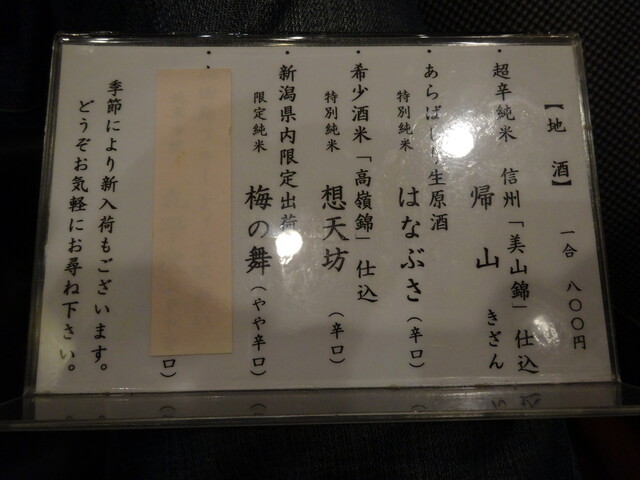 【地酒】 一合 八〇〇円
・超辛純米 信州「美山錦」仕込
帰山 きざん
・あらば 生原酒
特別純米 はなぶさ（辛口）
・希少酒米「高嶺錦」仕込
特別純米 想天坊（辛口）
・新潟県内限定出荷
限定純米 梅の舞（やや辛口）
・
口）
季節により新入荷もございます。
どうぞお気軽にお尋ね下さい。